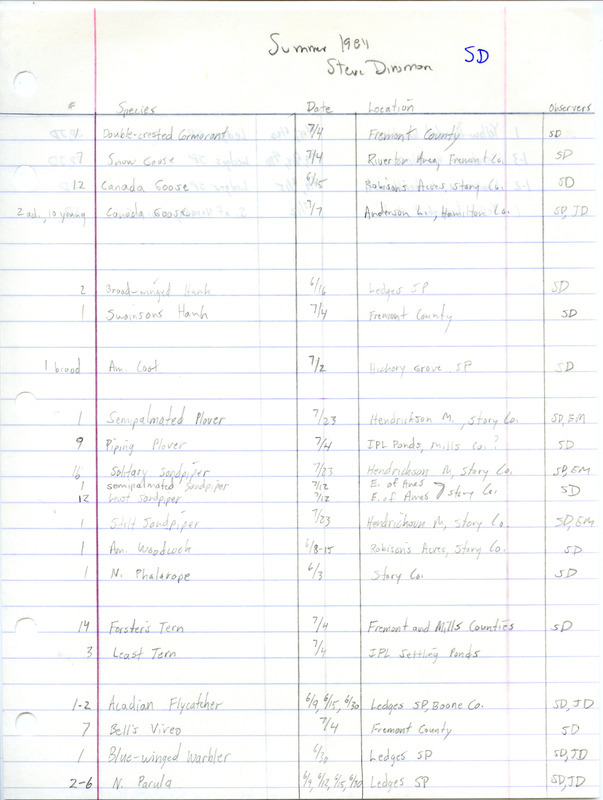 Summer 1984
Steve Dinsmore
SD
# Species Date Location Observers
1 Double-crested Cormorant 7/4 Fremont County SD
7 Snow Goose 7/4 Riverton Area, Fremont Co. SD
12 Canada Goose 6/15 Robison's Acres, Story Co. SD
2 ad., 10 young Canada Goose 7/7 Anderson L., Hamilton Co. SD, JD
2 Broad-winged Hawk 6/16 Ledges SP SD
1 Swainsons Hawk 7/4 Fremont County SD
1 brood Am. Coot 7/2 Hickory Grove SP SD
1 Semipalmated Plover 7/23 Hendrickson M., Story Co. SD, EM
9 Piping Plover 7/4 IPL Ponds, Mills Co. ? SD
16 Solitary Sandpiper 7/23 Hendrickson M, Story Co. SD, EM
1 Semipalmated Sandpiper 7/12 E. of Ames
12 Least Sandpiper 7/12 E. of Ames } Story Co. SD
1 Stilt Sandpiper 7/23 Hendrickson M, Story Co. SD, EM
1 Am. Woodcock 6/8-15 Robison's Acres, Story Co. SD
1 N. Phalarope 6/3 Story Co. SD
14 Forster's Tern 7/4 Fremont and Mills Counties SD
3 Least Tern 7/4 IPL Settling Ponds
1-2 Acadian Flycatcher 6/9, 6/15, 6/30 Ledges SP, Boone Co. SD, JD
7 Bell's Vireo 7/4 Fremont County SD
1 Blue-winged Warbler 6/30 Ledges SP SD, JD
2-6 N. Parula 6/9, 6/12, 6/15, 6/30 Ledges SP SD, JD